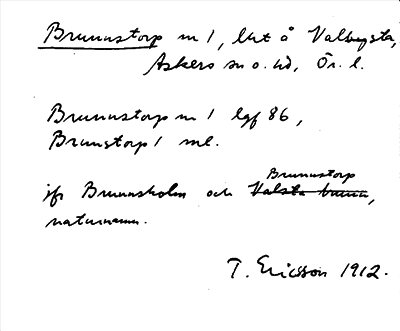 Brunnstorp nr 1, lht å Valbysta,
Askers sn o. hd, Ör. l.
Brunnstorp nr 1 lgf 86,
Brunstorp 1 ml.
jfr Brunnsholm och Valsta brunn,
Brunnstorp
naturnamn.
T. Ericsson 1912.